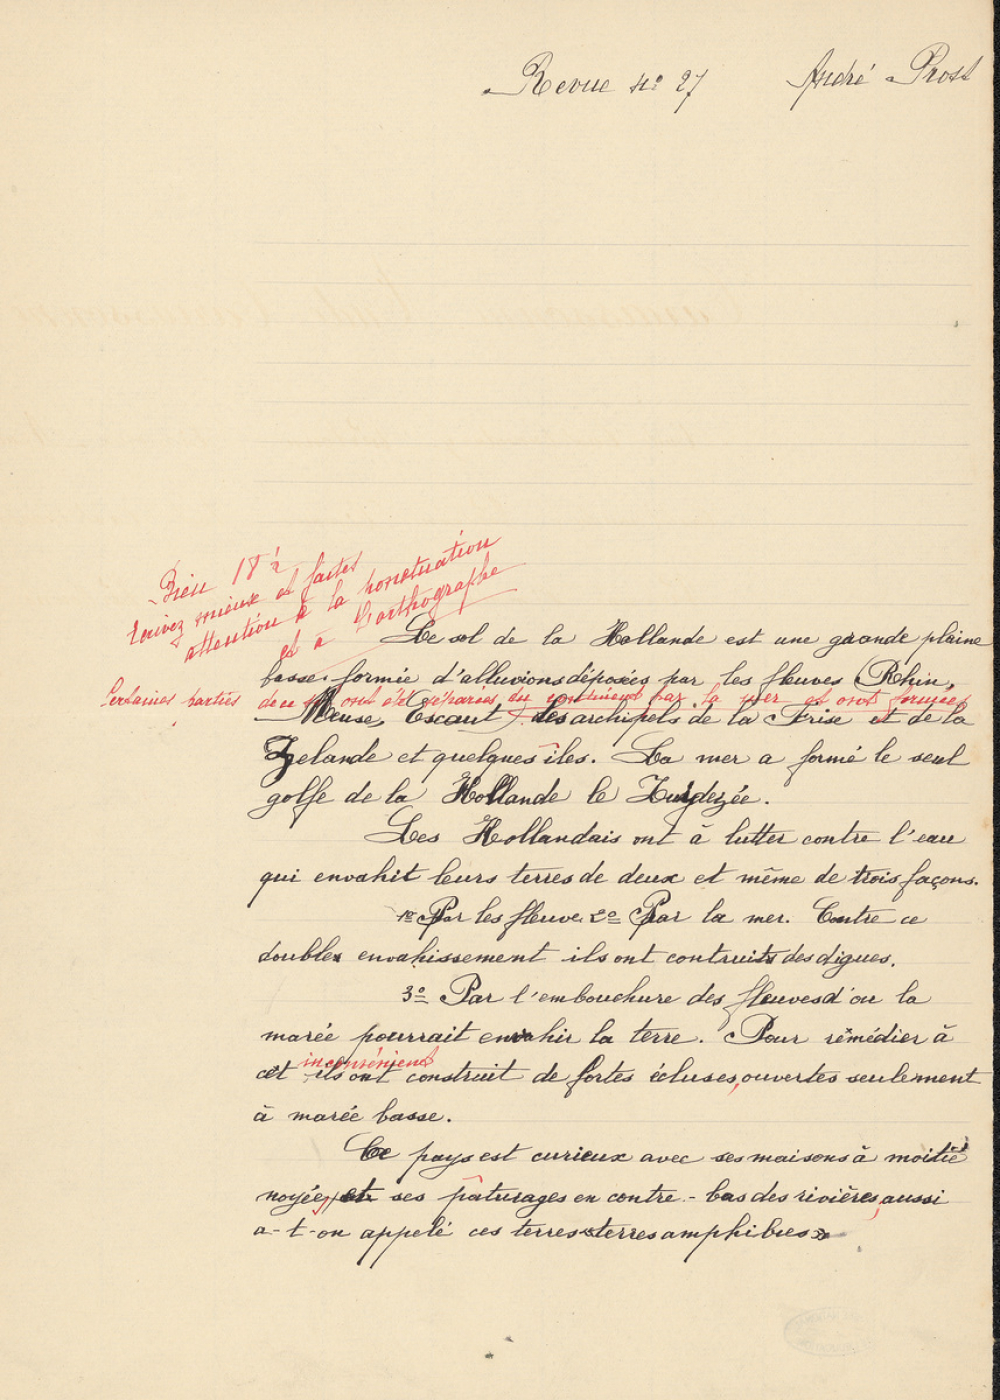 Revue nº 27 André Prost
Bien 18 1/2
Ecrivez mieux et faites
attention à la ponctuation
et à l'orthographe
Le sol de la Hollande est une grande plaine
basse formée d'alluvions déposées par les fleuves (Rhin,
Certaines parties de ce ont été séparées du continent par la mer et ont formées
Meuse, Escaut) les archipels de la Frise et de la
Zelande et quelques îles. La mer a formé le seul
golfe de la Hollande le Zuyderzée.
Les Hollandais ont à lutter contre l'eau
qui envahit leurs terres de deux et même de trois façons.
1º Par les fleuve 2º Par la mer. Contre ce
double envahissement ils ont contruits des digues.
3º Par l'embouchure des fleuves d'ou la
marée pourrait envahir la terre. Pour rémédier à
inconvénient
cet ils ont construit de fortes écluses, ouvertes seulement
à marée basse.
Ce pays est curieux avec ses maisons à moitié
noyées, et ses pâturages en contre-bas des rivières, aussi
a-t-on appelé ces terres « terres amphibies »